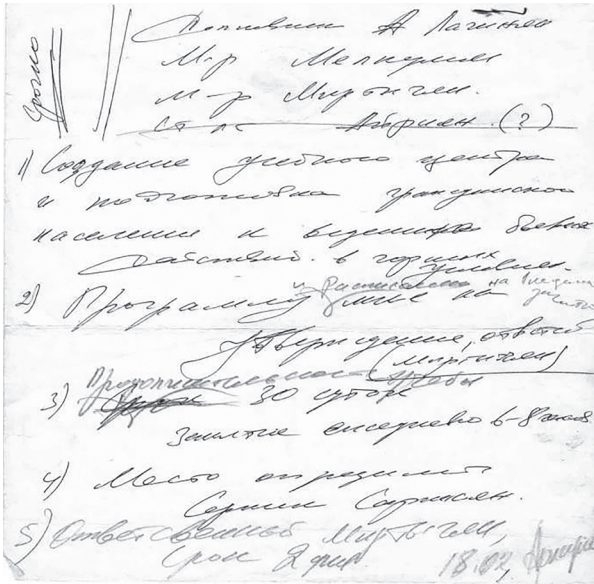 Срочно
Полковник А Лачинян
М-р Мелкумян
М-р Миртычян.
Айриян. (?)
1) Создание учебного центра
и подготовка гражданского
населения к ведению боевых
действий. в горных условиях.
2) Программу и Расписание на
мне на
утверждение, ответств
(Миртычян)
Продолжительность учебы
3) 30 суток
Занятие ежедневно 6-8 часов
4) Место определит
Серж Саркисян.
5) Ответственный Миртычян,
Срок 2 дня
18.02,